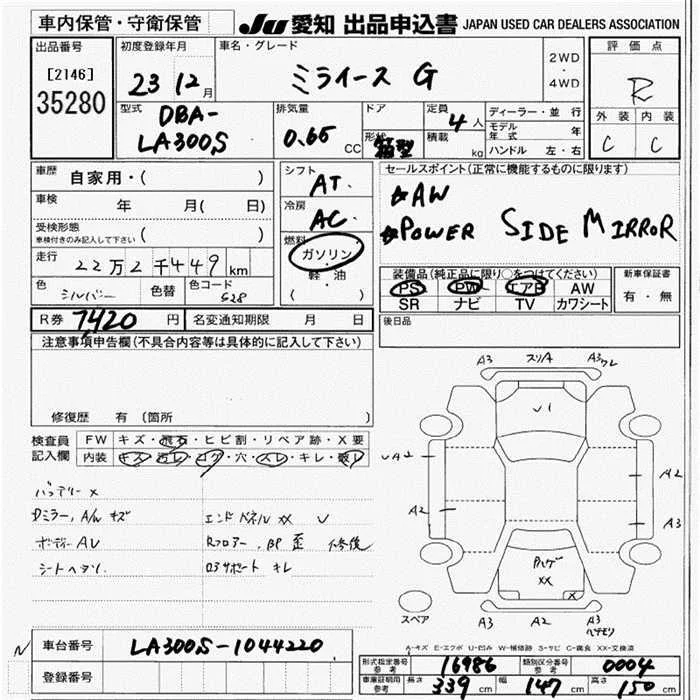 車内保管・守衛保管
JU 愛知 出品申込書 JAPAN USED CAR DEALERS ASSOCIATION
出品番号
[2146]
35280
初度登録年月
23 12月
車名・グレード
ミライース G
2WD
・
4WD
評価点
R
外装 内装
C C
型式
DBA-
LA300S
排気量
0.65 CC
ドア
形状
箱型
定員
4人
積載
kg
ディーラー・並行
モデル年式 年
ハンドル 左・右
車歴 自家用・( )
車検 年 月( 日)
受検形態
車検付きのみ記入して下さい ( )
走行 22万2千449km
色 シルバー 色替 色コード S28
シフト
AT.
冷房
AC.
燃料
ガソリン
軽・油
( )
セールスポイント(正常に機能するものに限ります)
☆AW
☆POWER SIDE MIRROR
装備品(純正品に限り○をつけてください)
PS PW エアB AW
SR ナビ TV カワシート
新車保証書
有・無
R券 7420円 名変通知期限 月 日
後日品
注意事項申告欄(不具合内容等は具体的に記入して下さい)
修復歴 有 〔箇所 〕
検査員記入欄
FW キズ・飛石・ヒビ割・リペア跡・X要
内装 キズ・汚レ・コゲ・穴・スレ・キレ・破レ
バッテリー×
Dミラー, A/W キズ
ボディー AU
シートヘタリ
エンドパネル XX U
Rフロアー, BP 歪 修復
ロアサポート キレ
A3 スリA A3ワレ
U1
A2
A2
A2
A3
Pハゲ
XX
X
スペア
A3 A2 A3
A-キズ E-エクボ U-凹み W-補修跡 S-サビ C-腐食 XX-交換済
N
車台番号 LA300S-1044220
登録番号
形式指定番号 参考 16986
類別区分番号 参考 0004
車庫証明用 参考 長さ 339cm 幅 147cm 高さ 150cm